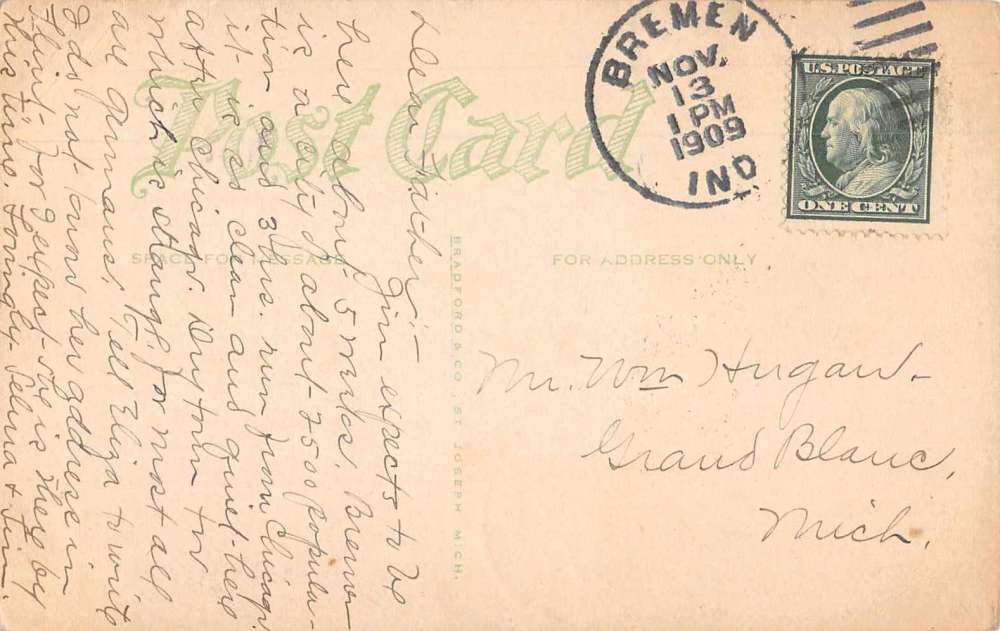 BREMEN
NOV.
13
1 PM
1909
IND
U.S. POSTAGE
ONE CENT
Post Card
SPACE FOR MESSAGE
FOR ADDRESS ONLY
BRADFORD & CO., ST. JOSEPH MICH.
Dear Father:—
Jim expects to be
here about 5 weeks. Bremen
is a city of about 2500 popula-
tion and 3 hrs. run from Chicago.
it is as clean and quiet here
after Chicago. Dry town too
which is strange for most all
are Germans. Tell Eliza to write
I do not know her address in
Flint for I expect she is there by
this time. Lovingly Selma + Jim.
Mr. Wm Hugaw-
Grand Blanc,
Mich.